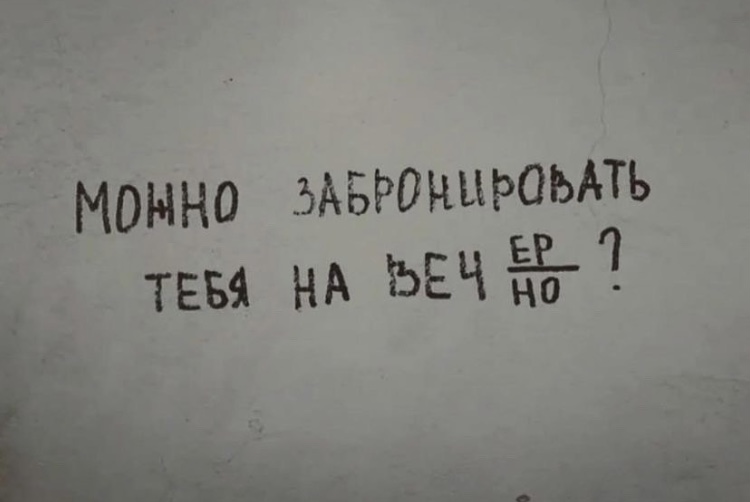 МОЖНО ЗАБРОНИРОВАТЬ
ТЕБЯ НА ВЕЧ ЕР/НО ?